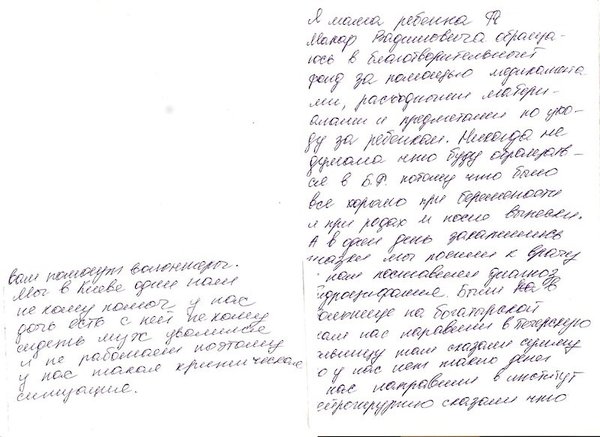 Я мама ребенка
Макар Вадимовича обраща-
юсь в благотворительный
фонд за помощью медикамента
ми, расходными матери-
алами и предметами по ухо-
ду за ребенком. Никогда не
думала что буду обращать-
ся в Б.Ф. потому что было
все хорошо при беремености
и при родах и после выписки.
А в один день закатились
глазки мы поехали к врачу
нам поставили диагноз
гидроцефалия. Были на в
больнице на богатырской
там нас направили в
больницу там сказали сумму
о у нас нет таких денег
нас направили в институт
сказали что
вам помогут волонтеры.
Мы в Киеве одни нам
не кому помоч у нас
дочь есть с ней не кому
сидеть муж уволился
и не работает поэтому
у нас такая критическая
ситуация.